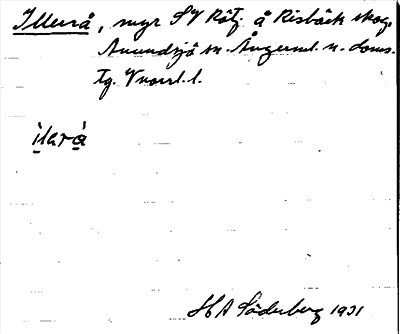 Illerå, myr SV Rötj. å Risbäck skog,
Anundsjö sn. Ångerml. n. doms.
tg. Vnorrl. l.
ìlarà
H A Söderberg 1931